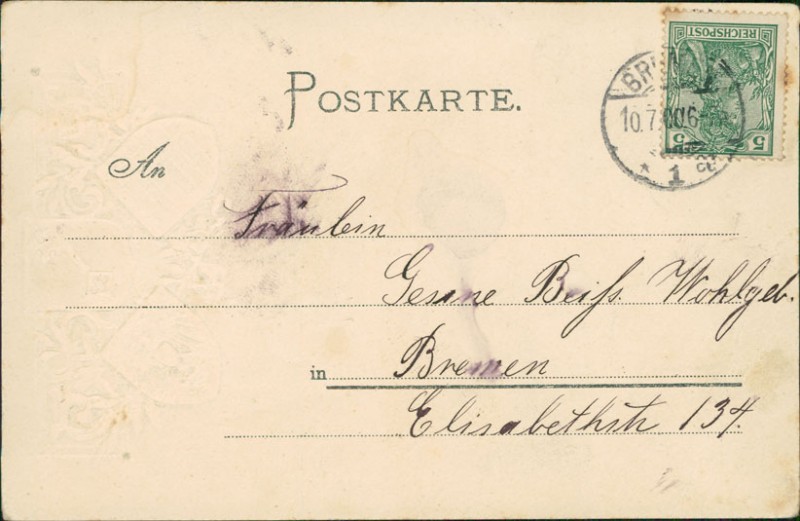 POSTKARTE.
REICHSPOST
5 5
10.7.00.6-
* 1 a
An
Fräulein
Gesine Beiß. Wohlgeb.
in Bremen
Elisabethstr 134.